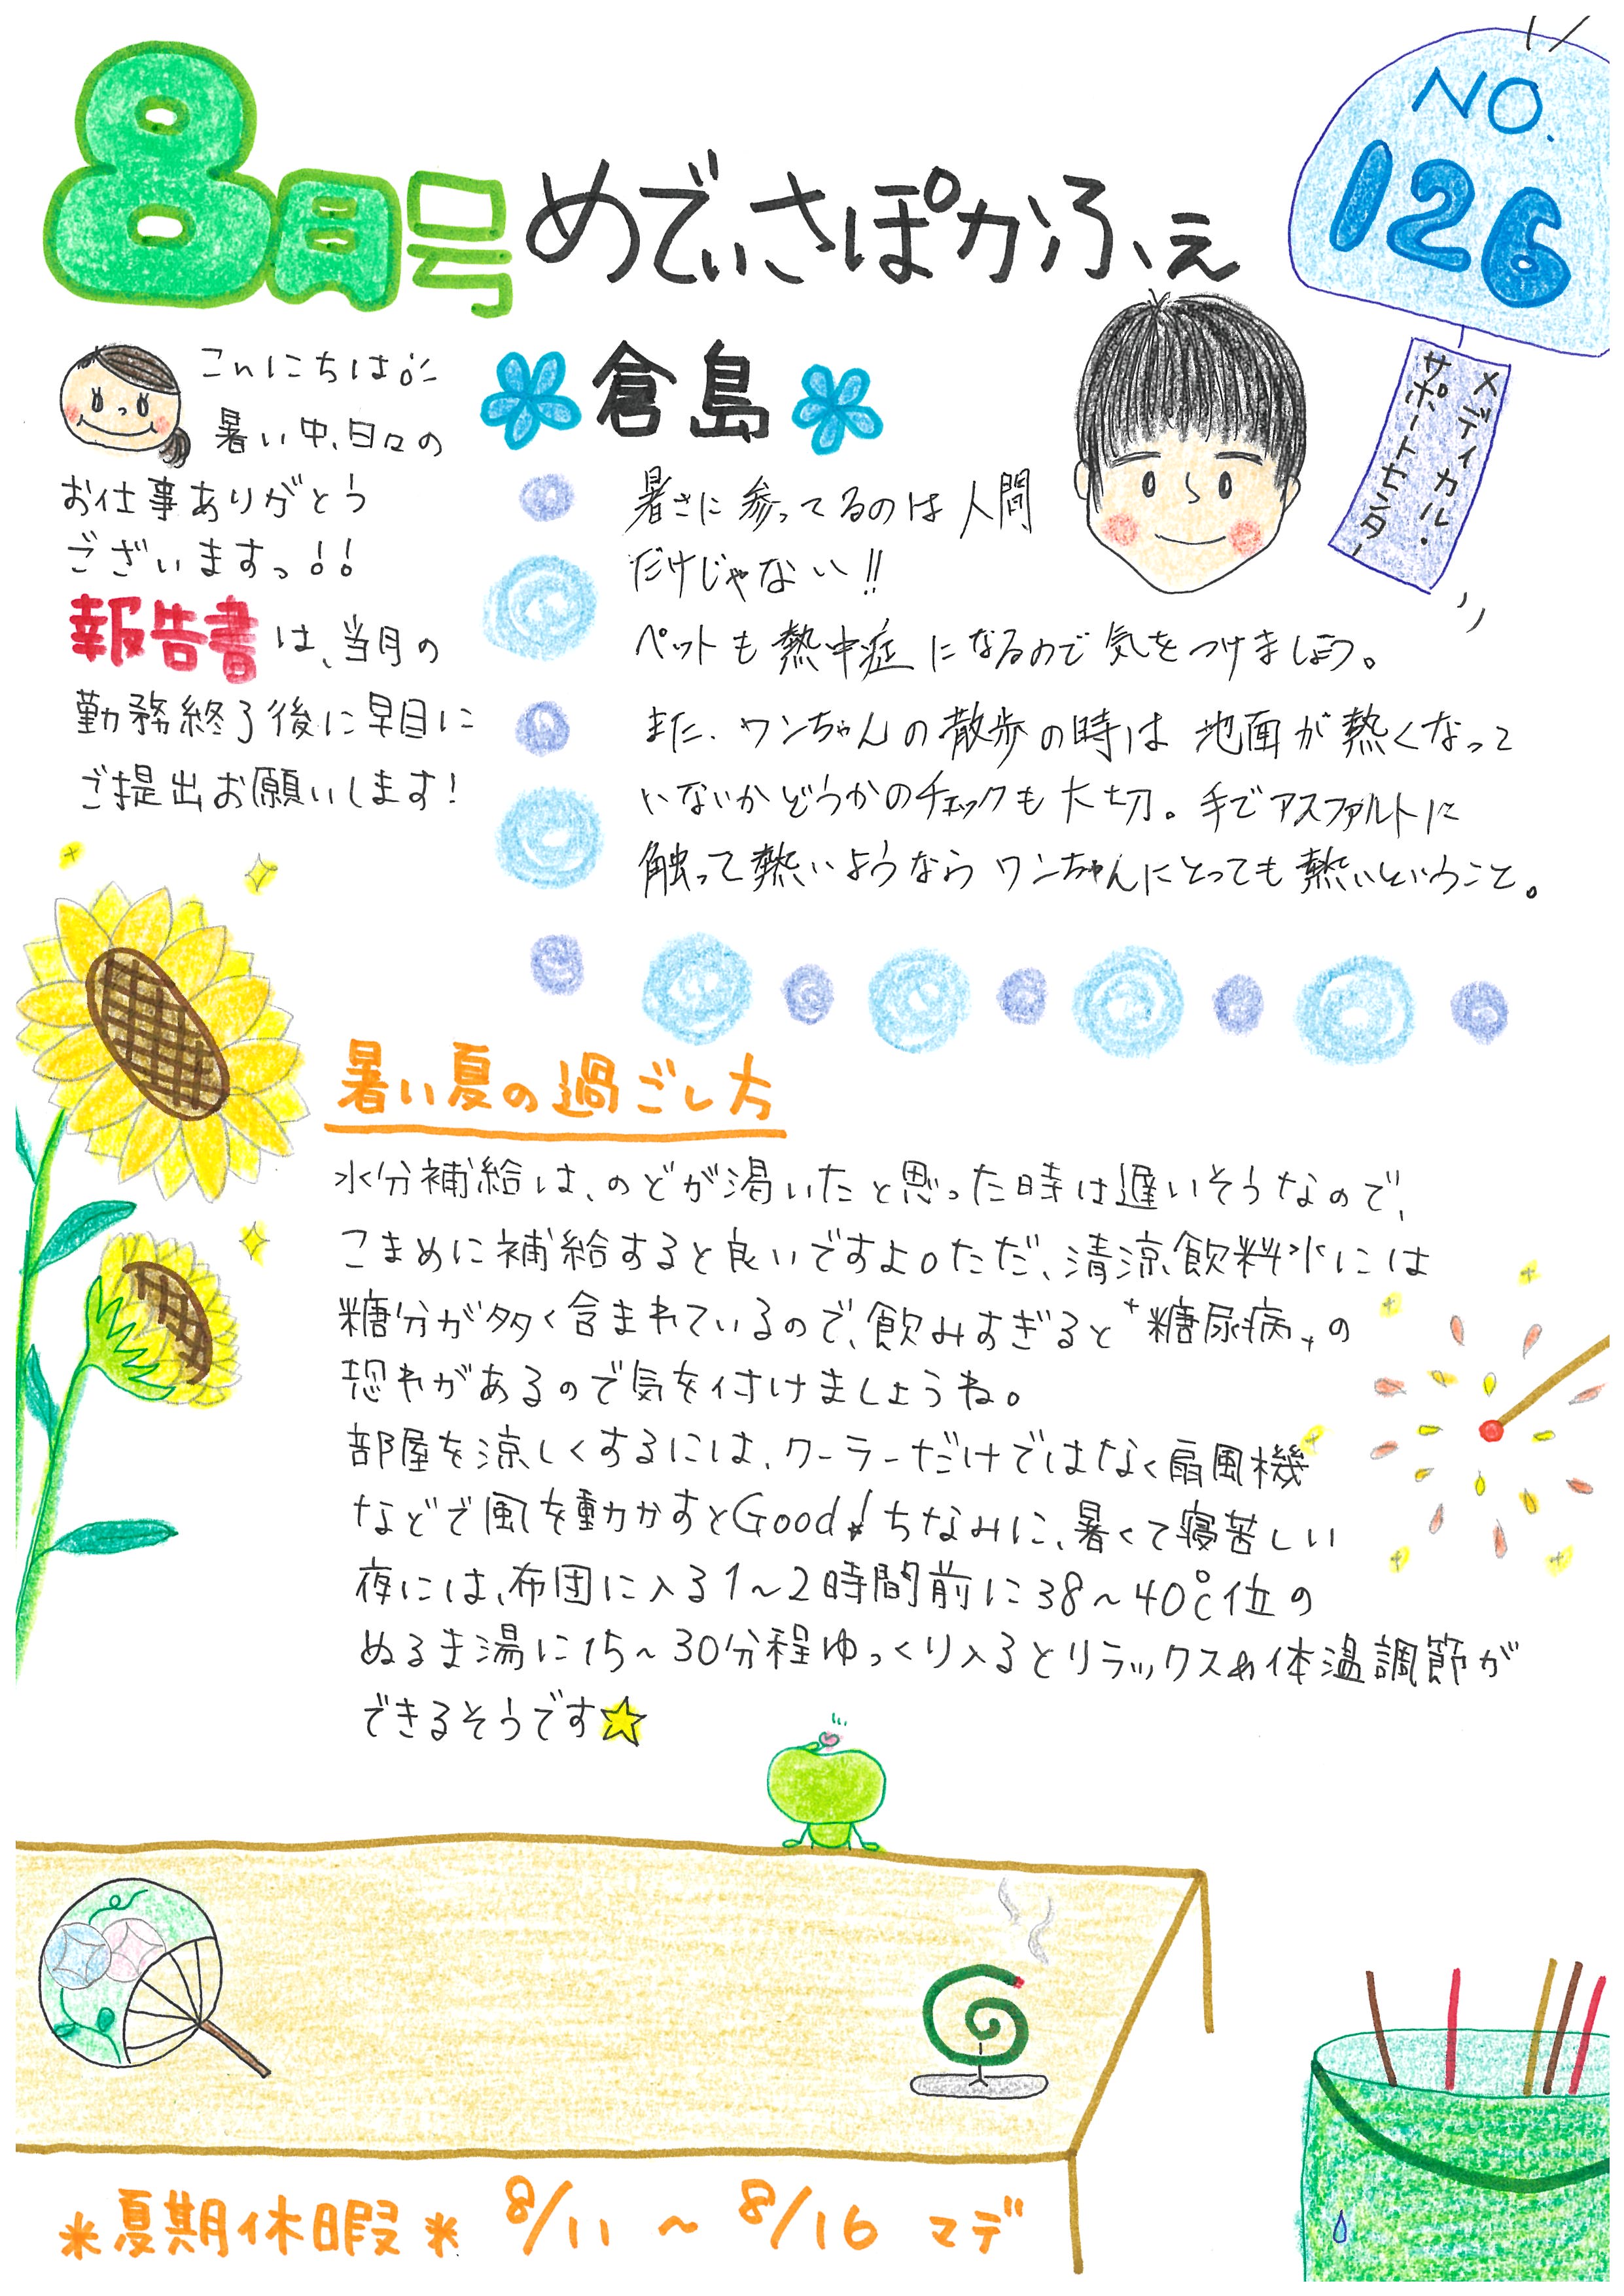 8月号 めでぃさぽかふぇ
NO.
126
メディカル・
サポートセンター
こんにちは!!
暑い中、日々の
お仕事ありがとう
ございますっ!!
報告書は、当月の
勤務終了後に早目に
ご提出お願いします!
倉島
暑さに参ってるのは人間
だけじゃない!!
ペットも熱中症になるので気をつけましょう。
また、ワンちゃんの散歩の時は地面が熱くなって
いないかどうかのチェックも大切。手でアスファルトに
触って熱いようならワンちゃんにとっても熱いということ。
暑い夏の過ごし方
水分補給は、のどが渇いたと思った時は遅いそうなので、
こまめに補給すると良いですよ。ただ、清涼飲料水には
糖分が多く含まれているので、飲みすぎると“糖尿病”の
恐れがあるので気を付けましょうね。
部屋を涼しくするには、クーラーだけではなく扇風機
などで風を動かすとGood!ちなみに、暑くて寝苦しい
夜には、布団に入る1〜2時間前に38〜40℃位の
ぬるま湯に15〜30分程ゆっくり入るとリラックス&体温調節が
できるそうです☆
*夏期休暇* 8/11 〜 8/16 マデ